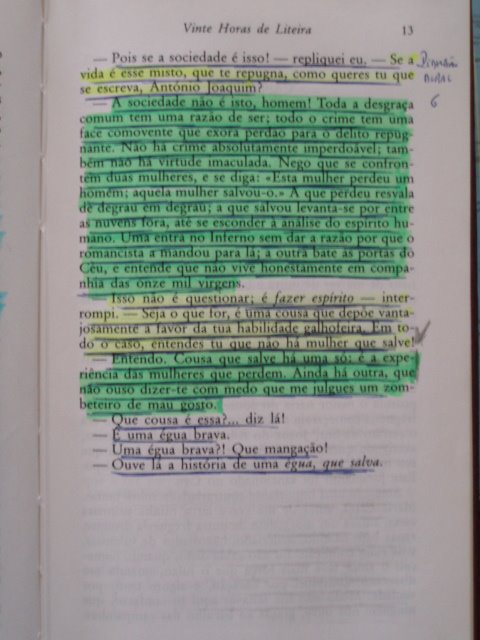 Vinte Horas de Liteira 13
— Pois se a sociedade é isso! — repliquei eu. — Se a
vida é esse misto, que te repugna, como queres tu que
se escreva, António Joaquim?
— A sociedade não é isto, homem! Toda a desgraça
comum tem uma razão de ser; todo o crime tem uma
face comovente que exora perdão para o delito repug-
nante. Não há crime absolutamente imperdoável; tam-
bém não há virtude imaculada. Nego que se confron-
tem duas mulheres, e se diga: «Esta mulher perdeu um
homem; aquela mulher salvou-o.» A que perdeu resvala
de degrau em degrau; a que salvou levanta-se por entre
as nuvens fora, até se esconder à análise do espírito hu-
mano. Uma entra no Inferno sem dar a razão por que o
romancista a mandou para lá; a outra bate às portas do
Céu, e entende que não vive honestamente em compa-
nhia das onze mil virgens.
Isso não é questionar; é fazer espírito — inter-
rompi. — Seja o que for, é uma cousa que depõe vanta-
josamente a favor da tua habilidade galhofeira. Em to-
do o caso, entendes tu que não há mulher que salve!
— Entendo. Cousa que salve há uma só: é a expe-
riência das mulheres que perdem. Ainda há outra, que
não ouso dizer-te com medo que me julgues um zom-
beteiro de mau gosto.
— Que cousa é essa?... diz lá!
— É uma égua brava.
— Uma égua brava?! Que mangação!
— Ouve lá a história de uma égua, que salva.
6